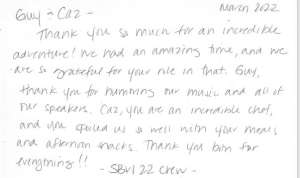 March 2022
Guy + Caz -
Thank you so much for an incredible
adventure! We had an amazing time, and we
are so grateful for your role in that. Guy,
thank you for humoring our music and all of
our speakers. Caz, you are an incredible chef,
and you spoiled us so well with your meals
and afternoon snacks. Thank you both for
everything!!
- SBVI 22 crew -